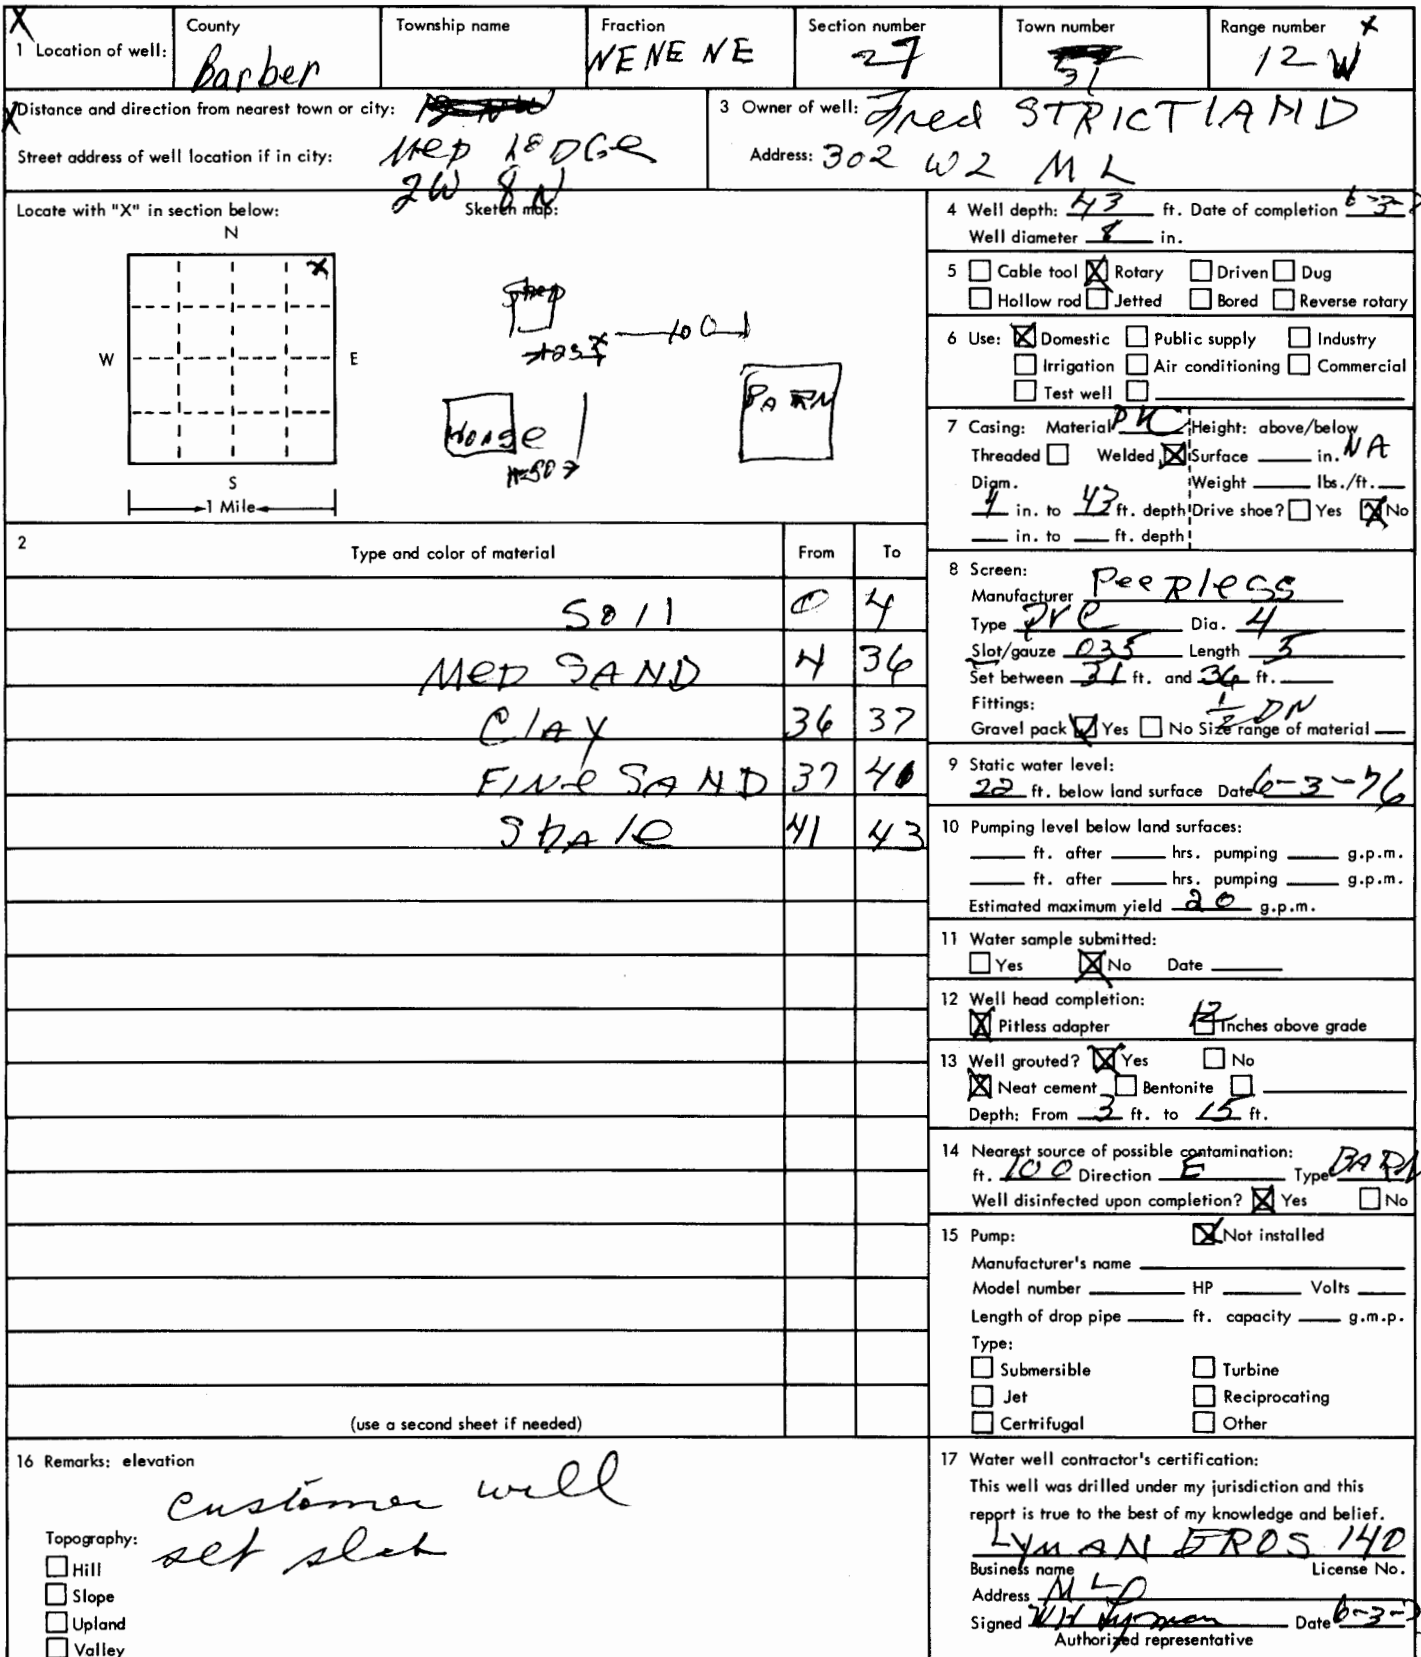 X
1 Location of well:
County
Barber
Township name
Fraction
NE NE NE
Section number
27
Town number
31
Range number X
12 W
X Distance and direction from nearest town or city:
Street address of well location if in city:
MED LODGE
2W 8N
3 Owner of well: Fred STRICTLAND
Address: 302 W2 ML
Locate with "X" in section below:
Sketch map:
N
X
W
E
S
1 Mile
Shed
X
100
House
50
BARN
4 Well depth: 43 ft. Date of completion 6-3-
Well diameter 8 in.
5 Cable tool X Rotary Driven Dug
Hollow rod Jetted Bored Reverse rotary
6 Use: X Domestic Public supply Industry
Irrigation Air conditioning Commercial
Test well
7 Casing: Material PVC Height: above/below
Threaded Welded X Surface in. NA
Diam. Weight lbs./ft.
4 in. to 43 ft. depth Drive shoe? Yes X No
in. to ft. depth
2 Type and color of material From To
Soil 0 4
MED SAND 4 36
Clay 36 37
FINE SAND 37 41
Shale 41 43
(use a second sheet if needed)
8 Screen:
Manufacturer Peerless
Type PVC Dia. 4
Slot/gauze 035 Length 5
Set between 31 ft. and 36 ft.
Fittings: 1/2 DN
Gravel pack Yes No Size range of material
9 Static water level:
22 ft. below land surface Date 6-3-76
10 Pumping level below land surfaces:
ft. after hrs. pumping g.p.m.
ft. after hrs. pumping g.p.m.
Estimated maximum yield 20 g.p.m.
11 Water sample submitted:
Yes X No Date
12 Well head completion:
X Pitless adapter 12 Inches above grade
13 Well grouted? X Yes No
X Neat cement Bentonite
Depth: From 3 ft. to 15 ft.
14 Nearest source of possible contamination:
ft. 100 Direction E Type BARN
Well disinfected upon completion? X Yes No
15 Pump: X Not installed
Manufacturer's name
Model number HP Volts
Length of drop pipe ft. capacity g.m.p.
Type:
Submersible Turbine
Jet Reciprocating
Certrifugal Other
16 Remarks: elevation
customer will
set slab
Topography:
Hill
Slope
Upland
Valley
17 Water well contractor's certification:
This well was drilled under my jurisdiction and this
report is true to the best of my knowledge and belief.
LYMAN BROS 140
Business name License No.
Address ML
Signed WH Lyman Date 6-3-
Authorized representative